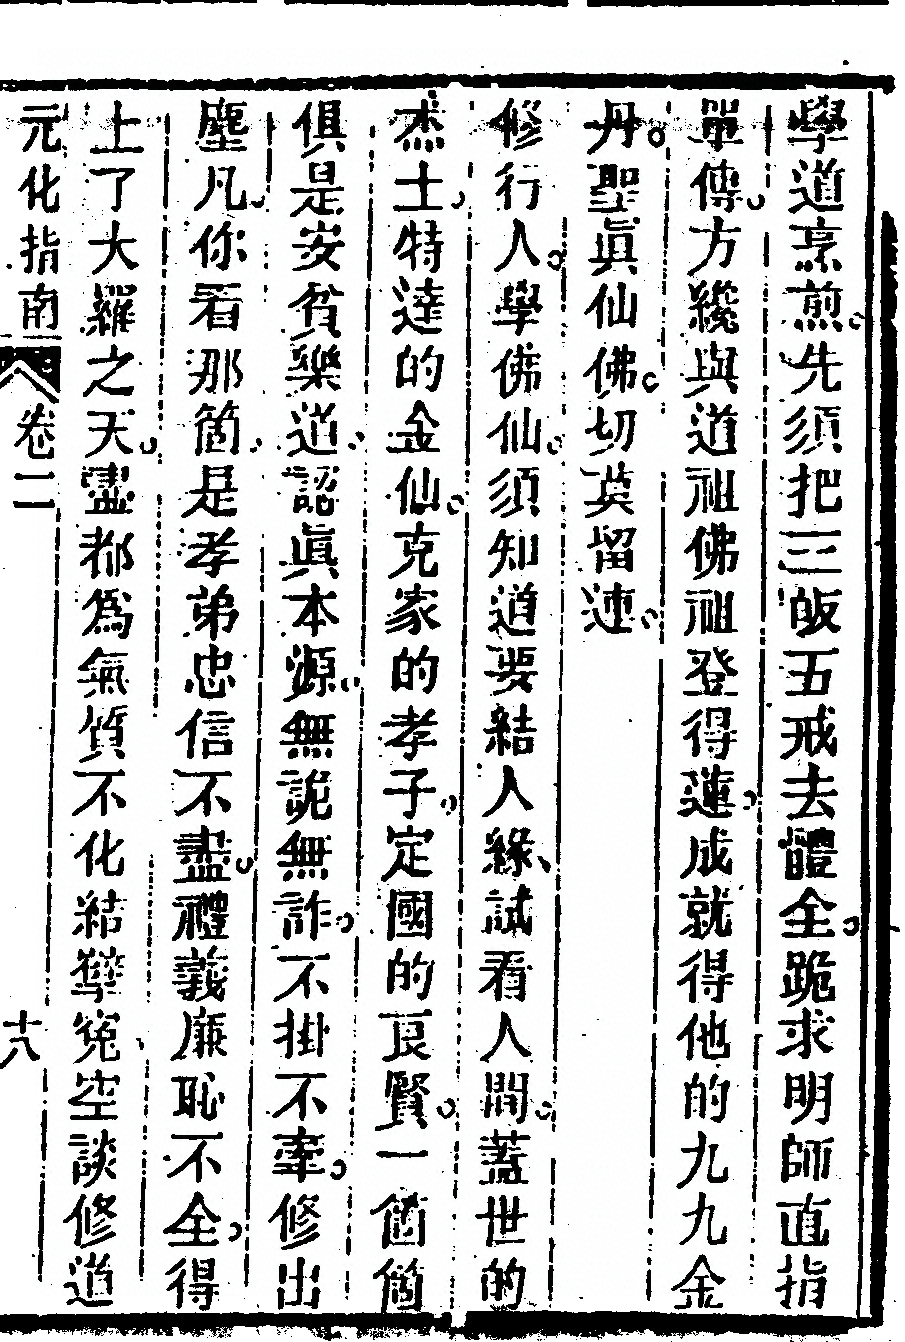 學道烹煎先須把三皈五戒去體全跪求明師直指
單傳方纔與道祖佛祖登得蓮成就得他的九九金
丹聖眞仙佛切莫留連
修行人學佛仙須知道要結人緣試看人間蓋世的
杰士特達的金仙克家的孝子定國的良賢一箇箇
俱是安貧樂道認眞本源無詭無詐不掛不牽修出
塵凡你看那箇是孝弟忠信不盡禮義廉恥不全得
上了大羅之天盡都爲氣質不化結孽寃空談修道
元化指南
卷二
十八